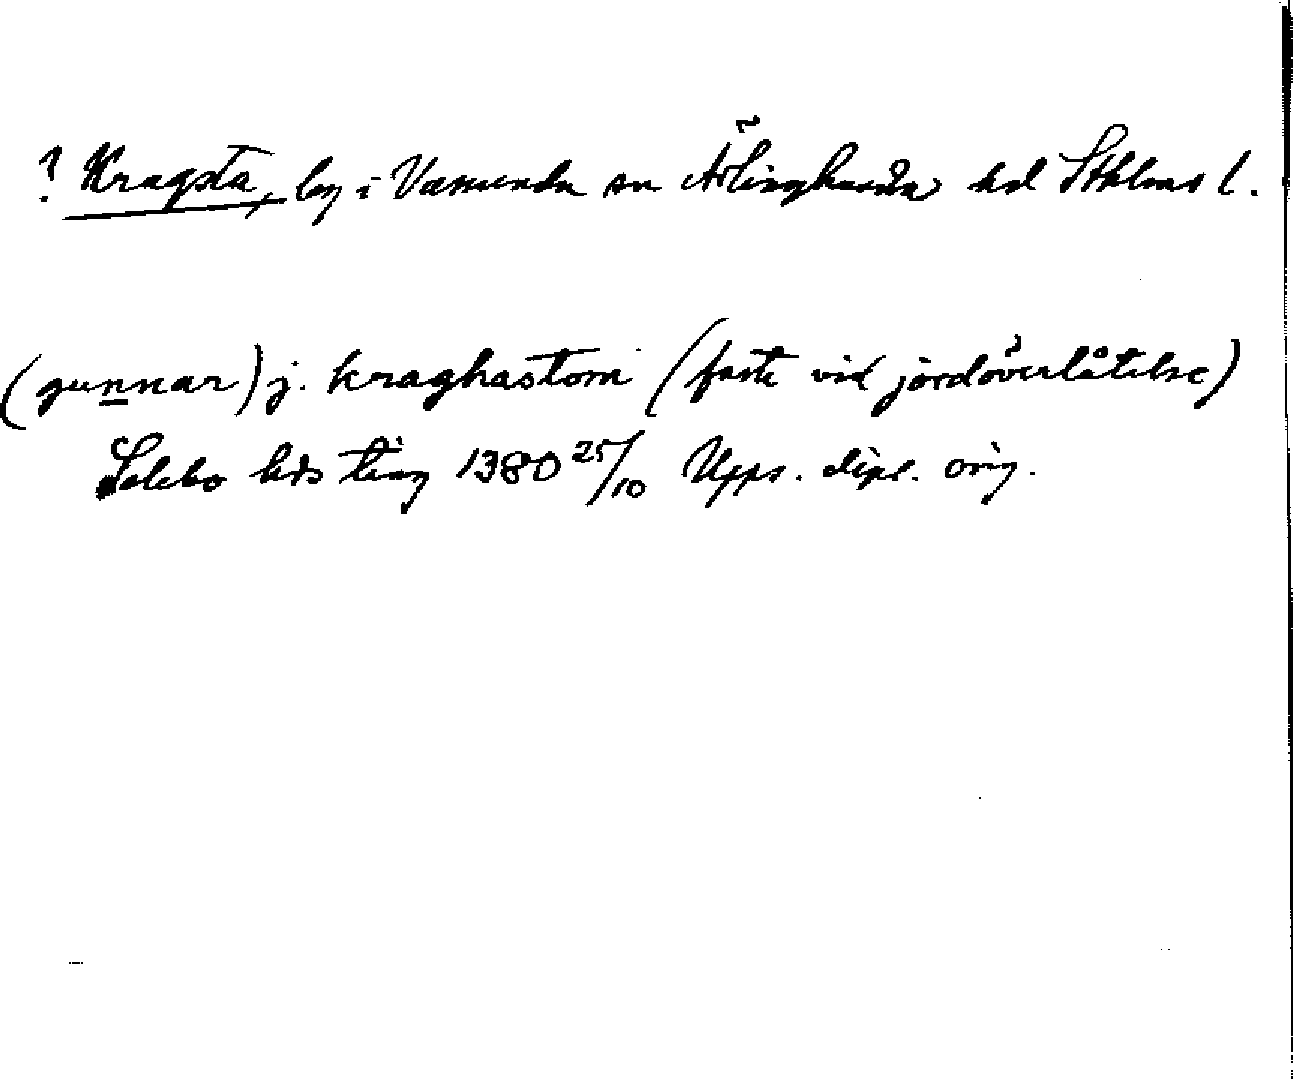 ? Kragsta, by i Vasunda sn Ärlinghundra hd Sthlms l.
(gunnar) j. kraghastom (faste vid jordöverlåtelse)
Solebo hds ting 1380 25/10 Upps. dipl. orig.